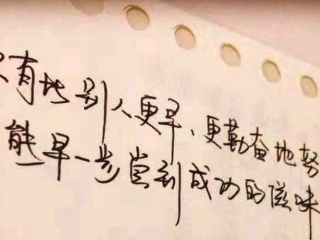 只有比别人更早、更勤奋地努
能早一步尝到成功的滋味